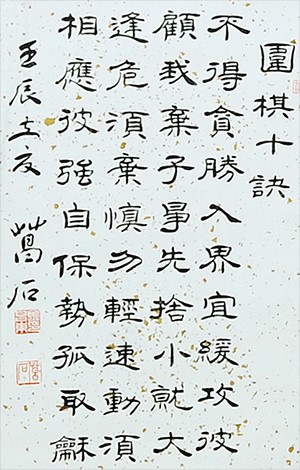 圍棋十訣
不得貪勝入界宜緩攻彼
顧我棄子爭先捨小就大
逢危須棄慎勿輕速動須
相應彼強自保勢孤取龢
壬辰
石